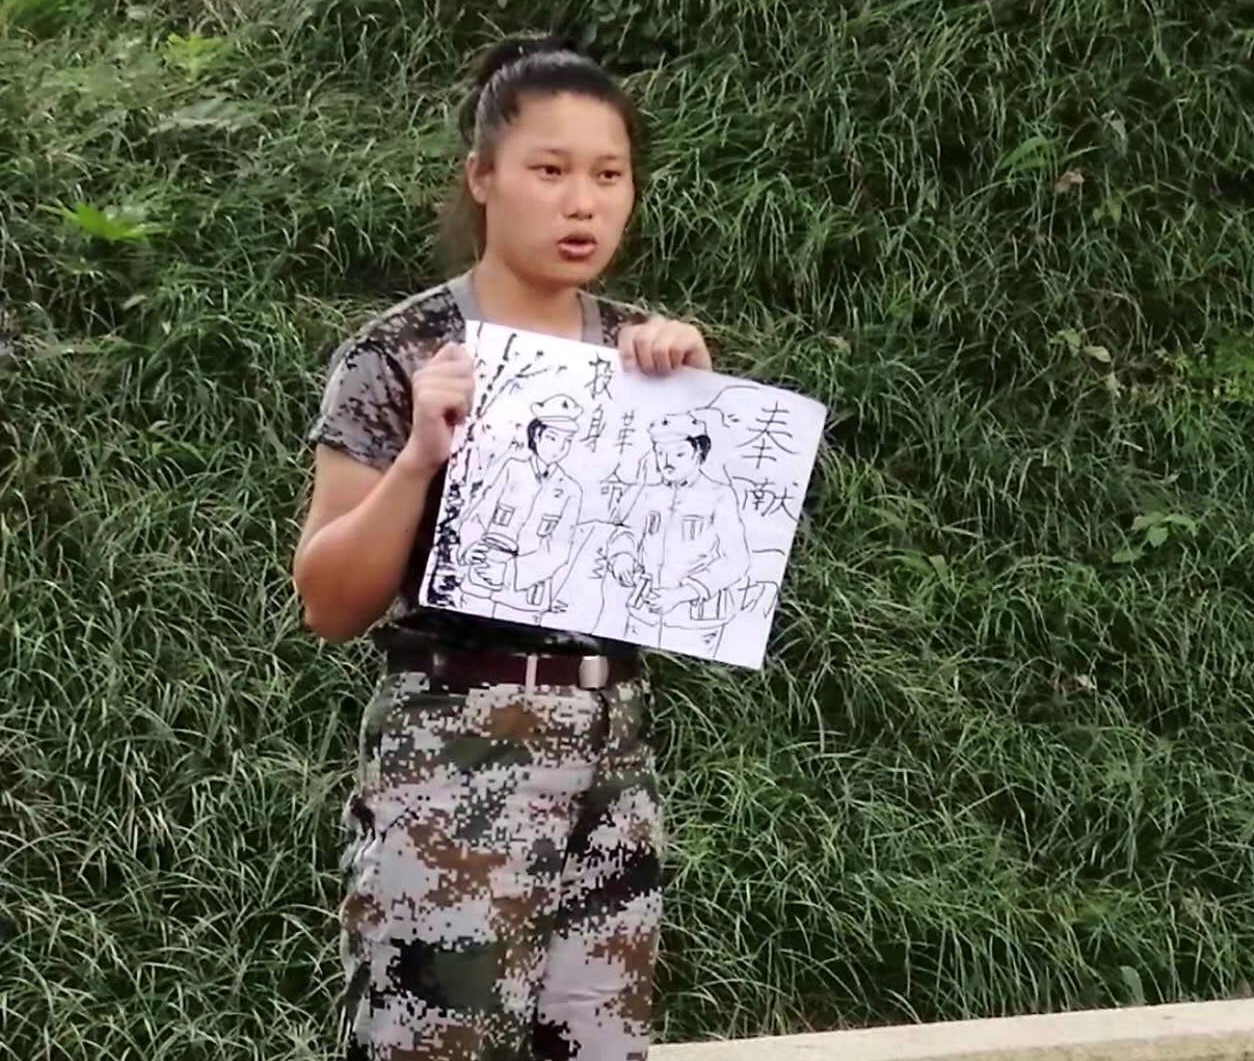 投身革命
奉献一切